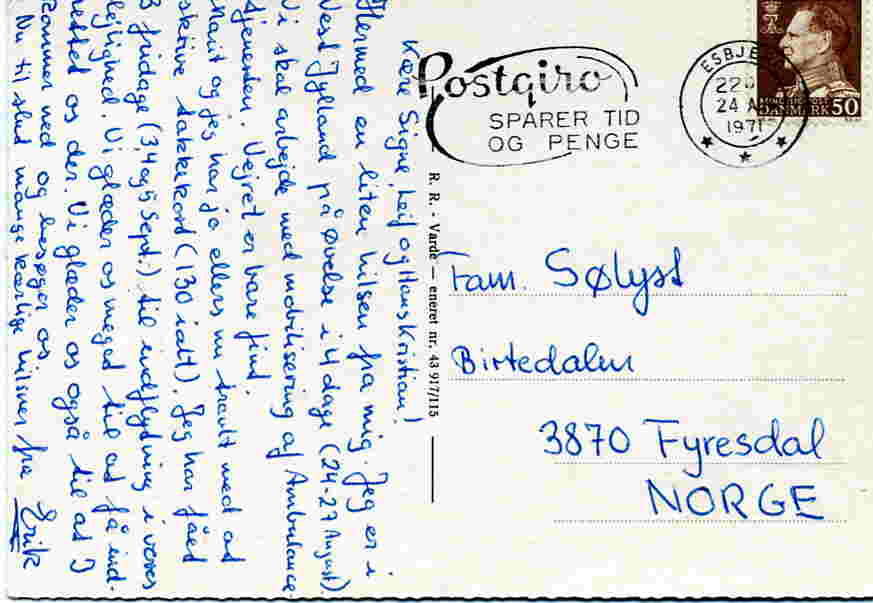 Kære Signe, Leif og Hans Kristian!
Hermed en liten hilsen fra mig. Jeg er i
Vest Jylland på øvelse i 4 dage (24-27 August).
Vi skal arbejde med mobilisering af Ambulance
tjenesten. Vejret er bare fint.
Marit og jeg har jo ellers nu travlt med at
skrive takkekort (130 ialt). Jeg har fået
3 fridage (3 4 og 5 Sept.) til indflydning i vores
lejlighed. Vi glæder os meget til at få ind-
rettet os der. Vi glæder os også til at I
kommer ned og besøger os.
Nu til slut mange kærlige hilsner fra Erik
Postgiro
SPARER TID
OG PENGE
ESBJE
22
24 A
1971
DANMARK 50
R. R. - Varde — eneret nr. 43 917/115
Fam. Sølyst
Birtedalen
3870 Fyresdal
NORGE